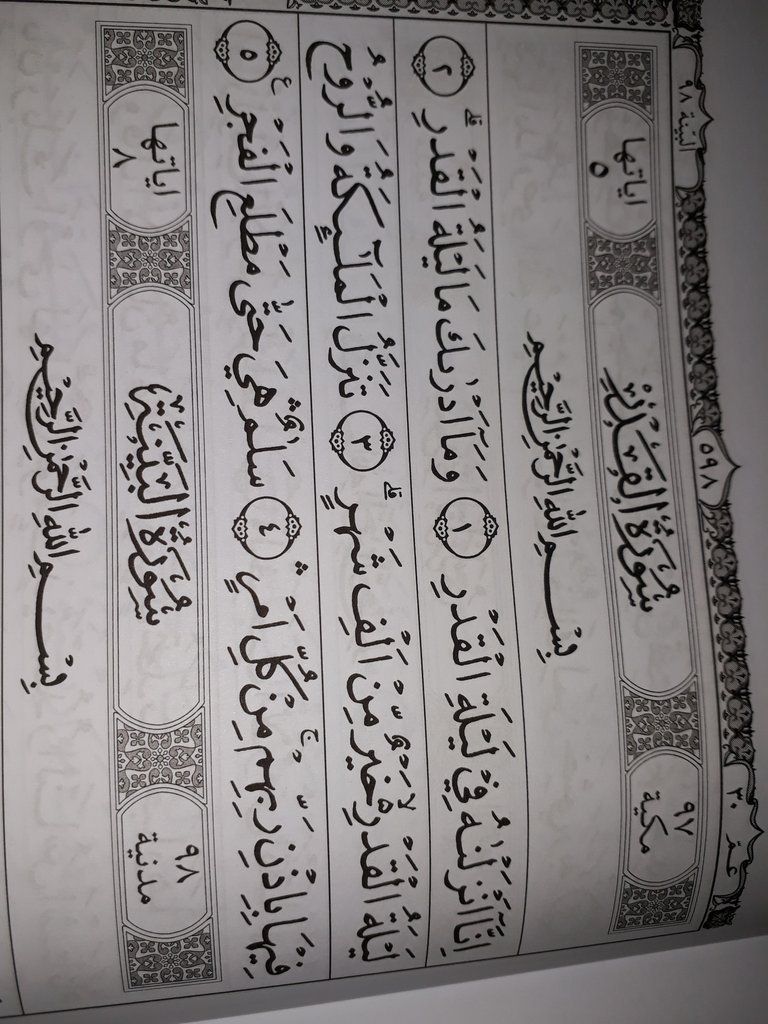 عمّ ٣٠ ٥٩٨ البينة ٩٨
٩٧ مكية سُوْرَةُ الْقَدْرِ اٰياتها ٥
بِسْمِ اللّٰهِ الرَّحْمٰنِ الرَّحِيْمِ
اِنَّآ اَنْزَلْنٰهُ فِيْ لَيْلَةِ الْقَدْرِ ١ وَمَآ اَدْرٰىكَ مَا لَيْلَةُ الْقَدْرِۗ ٢
لَيْلَةُ الْقَدْرِ ەۙ خَيْرٌ مِّنْ اَلْفِ شَهْرٍۗ ٣ تَنَزَّلُ الْمَلٰۤىِٕكَةُ وَالرُّوْحُ
فِيْهَا بِاِذْنِ رَبِّهِمْۚ مِنْ كُلِّ اَمْرٍۛ ٤ سَلٰمٌۛ هِيَ حَتّٰى مَطْلَعِ الْفَجْرِ ࣖ ٥
٩٨ مدنية سُوْرَةُ الْبَيِّنَةِ اٰياتها ٨
بِسْمِ اللّٰهِ الرَّحْمٰنِ الرَّحِيْمِ